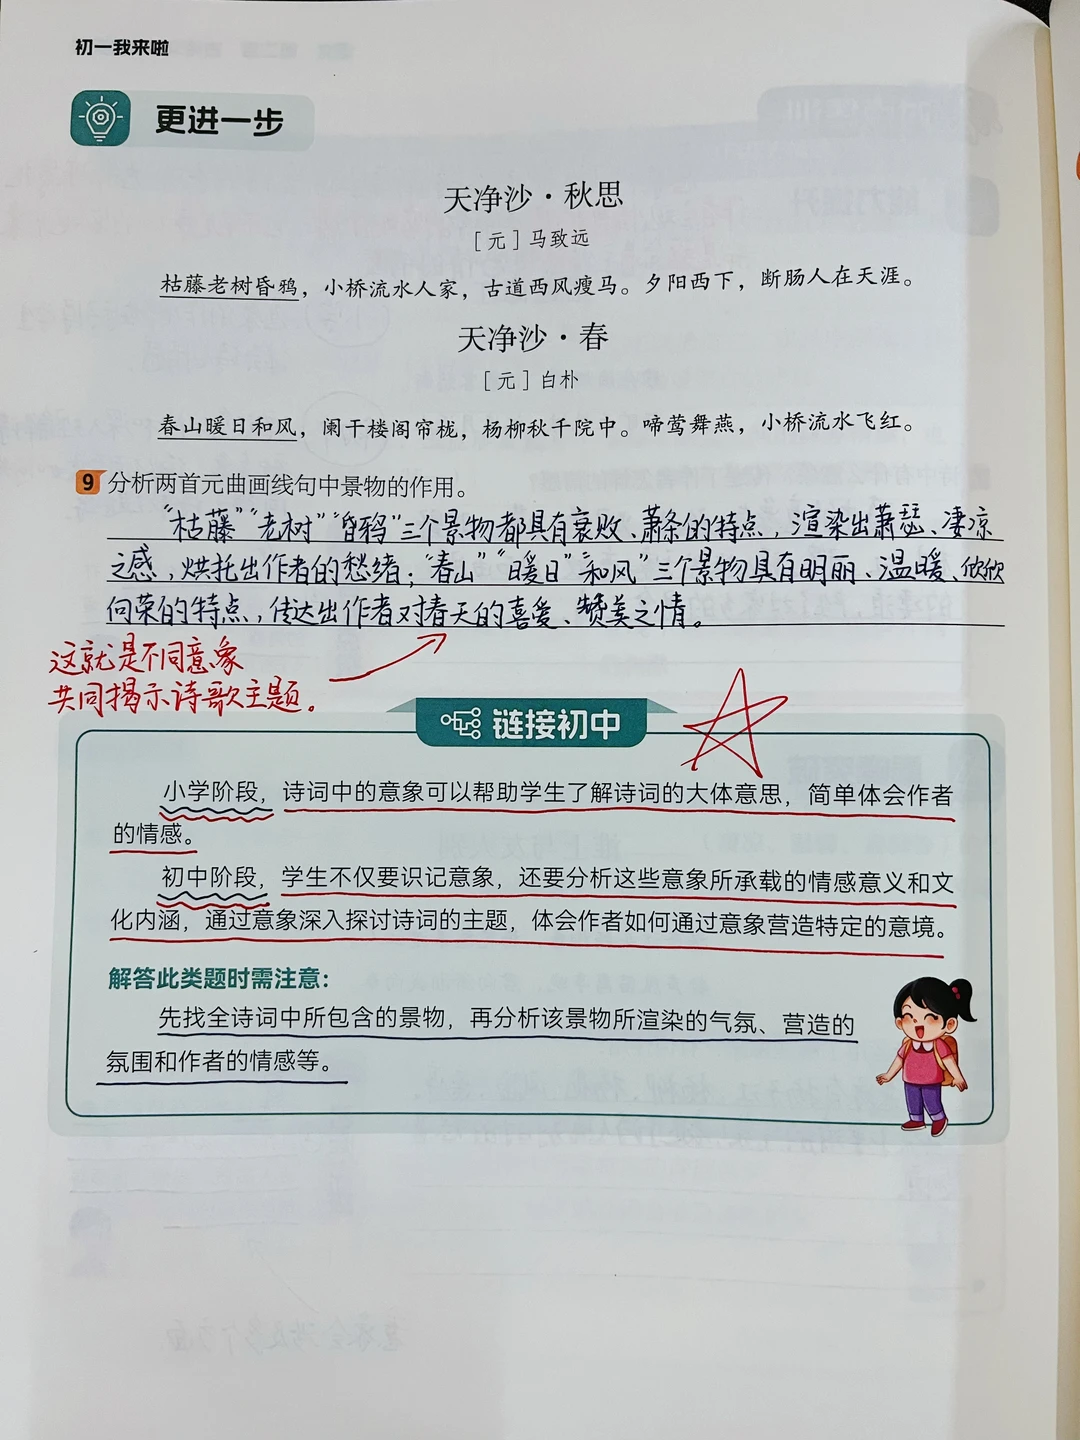 初一我来啦
更进一步
天净沙·秋思
［元］马致远
枯藤老树昏鸦，小桥流水人家，古道西风瘦马。夕阳西下，断肠人在天涯。
天净沙·春
［元］白朴
春山暖日和风，阑干楼阁帘栊，杨柳秋千院中。啼莺舞燕，小桥流水飞红。
9 分析两首元曲画线句中景物的作用。
“枯藤”“老树”“昏鸦”三个景物都具有衰败、萧条的特点，渲染出萧瑟、凄凉
之感，烘托出作者的愁绪；“春山”“暖日”“和风”三个景物具有明丽、温暖、欣欣
向荣的特点，传达出作者对春天的喜爱、赞美之情。
这就是不同意象
共同揭示诗歌主题。
链接初中
小学阶段，诗词中的意象可以帮助学生了解诗词的大体意思，简单体会作者
的情感。
初中阶段，学生不仅要识记意象，还要分析这些意象所承载的情感意义和文
化内涵，通过意象深入探讨诗词的主题，体会作者如何通过意象营造特定的意境。
解答此类题时需注意：
先找全诗词中所包含的景物，再分析该景物所渲染的气氛、营造的
氛围和作者的情感等。